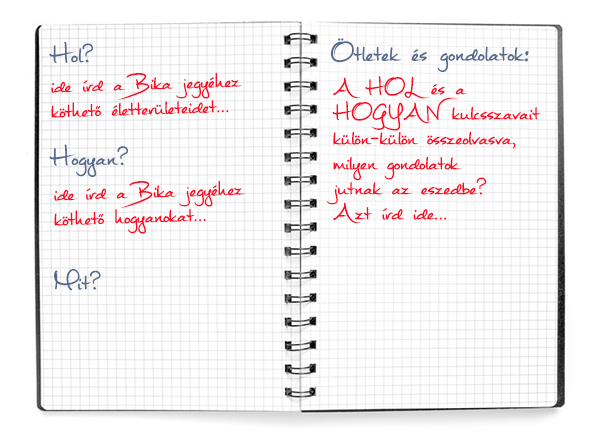 Hol?
ide írd a Bika jegyéhez
köthető életterületeidet...
Hogyan?
ide írd a Bika jegyéhez
köthető hogyanokat...
Mit?
Ötletek és gondolatok:
A HOL és a
HOGYAN kulcsszavait
külön-külön összeolvasva,
milyen gondolatok
jutnak az eszedbe?
Azt írd ide...